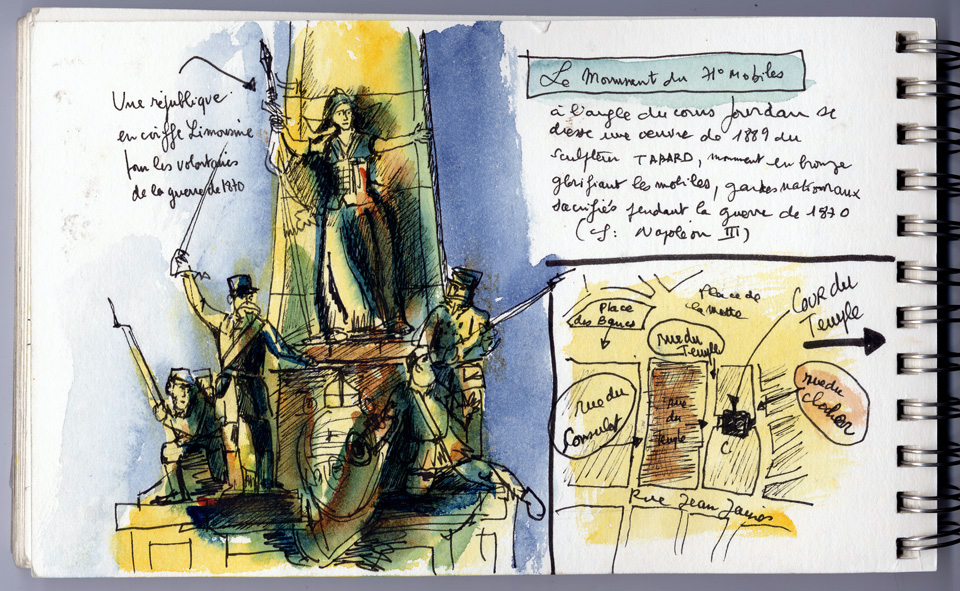 Une république
en coiffe Limousine
pour les volontaires
de la guerre de 1870
Le Monument du 71° Mobiles
à l'angle du cours Jourdan se
dresse une œuvre de 1889 du
sculpteur TABARD, monument en bronze
glorifiant les mobiles, gardes nationaux
sacrifiés pendant la guerre de 1870
(cf: Napoléon III)
Place
des Bancs
Place de
la Motte
Cour du
Temple
rue du
Temple
rue du
Consulat
rue
du
Temple
rue du
clocher
Rue Jean Jaurès